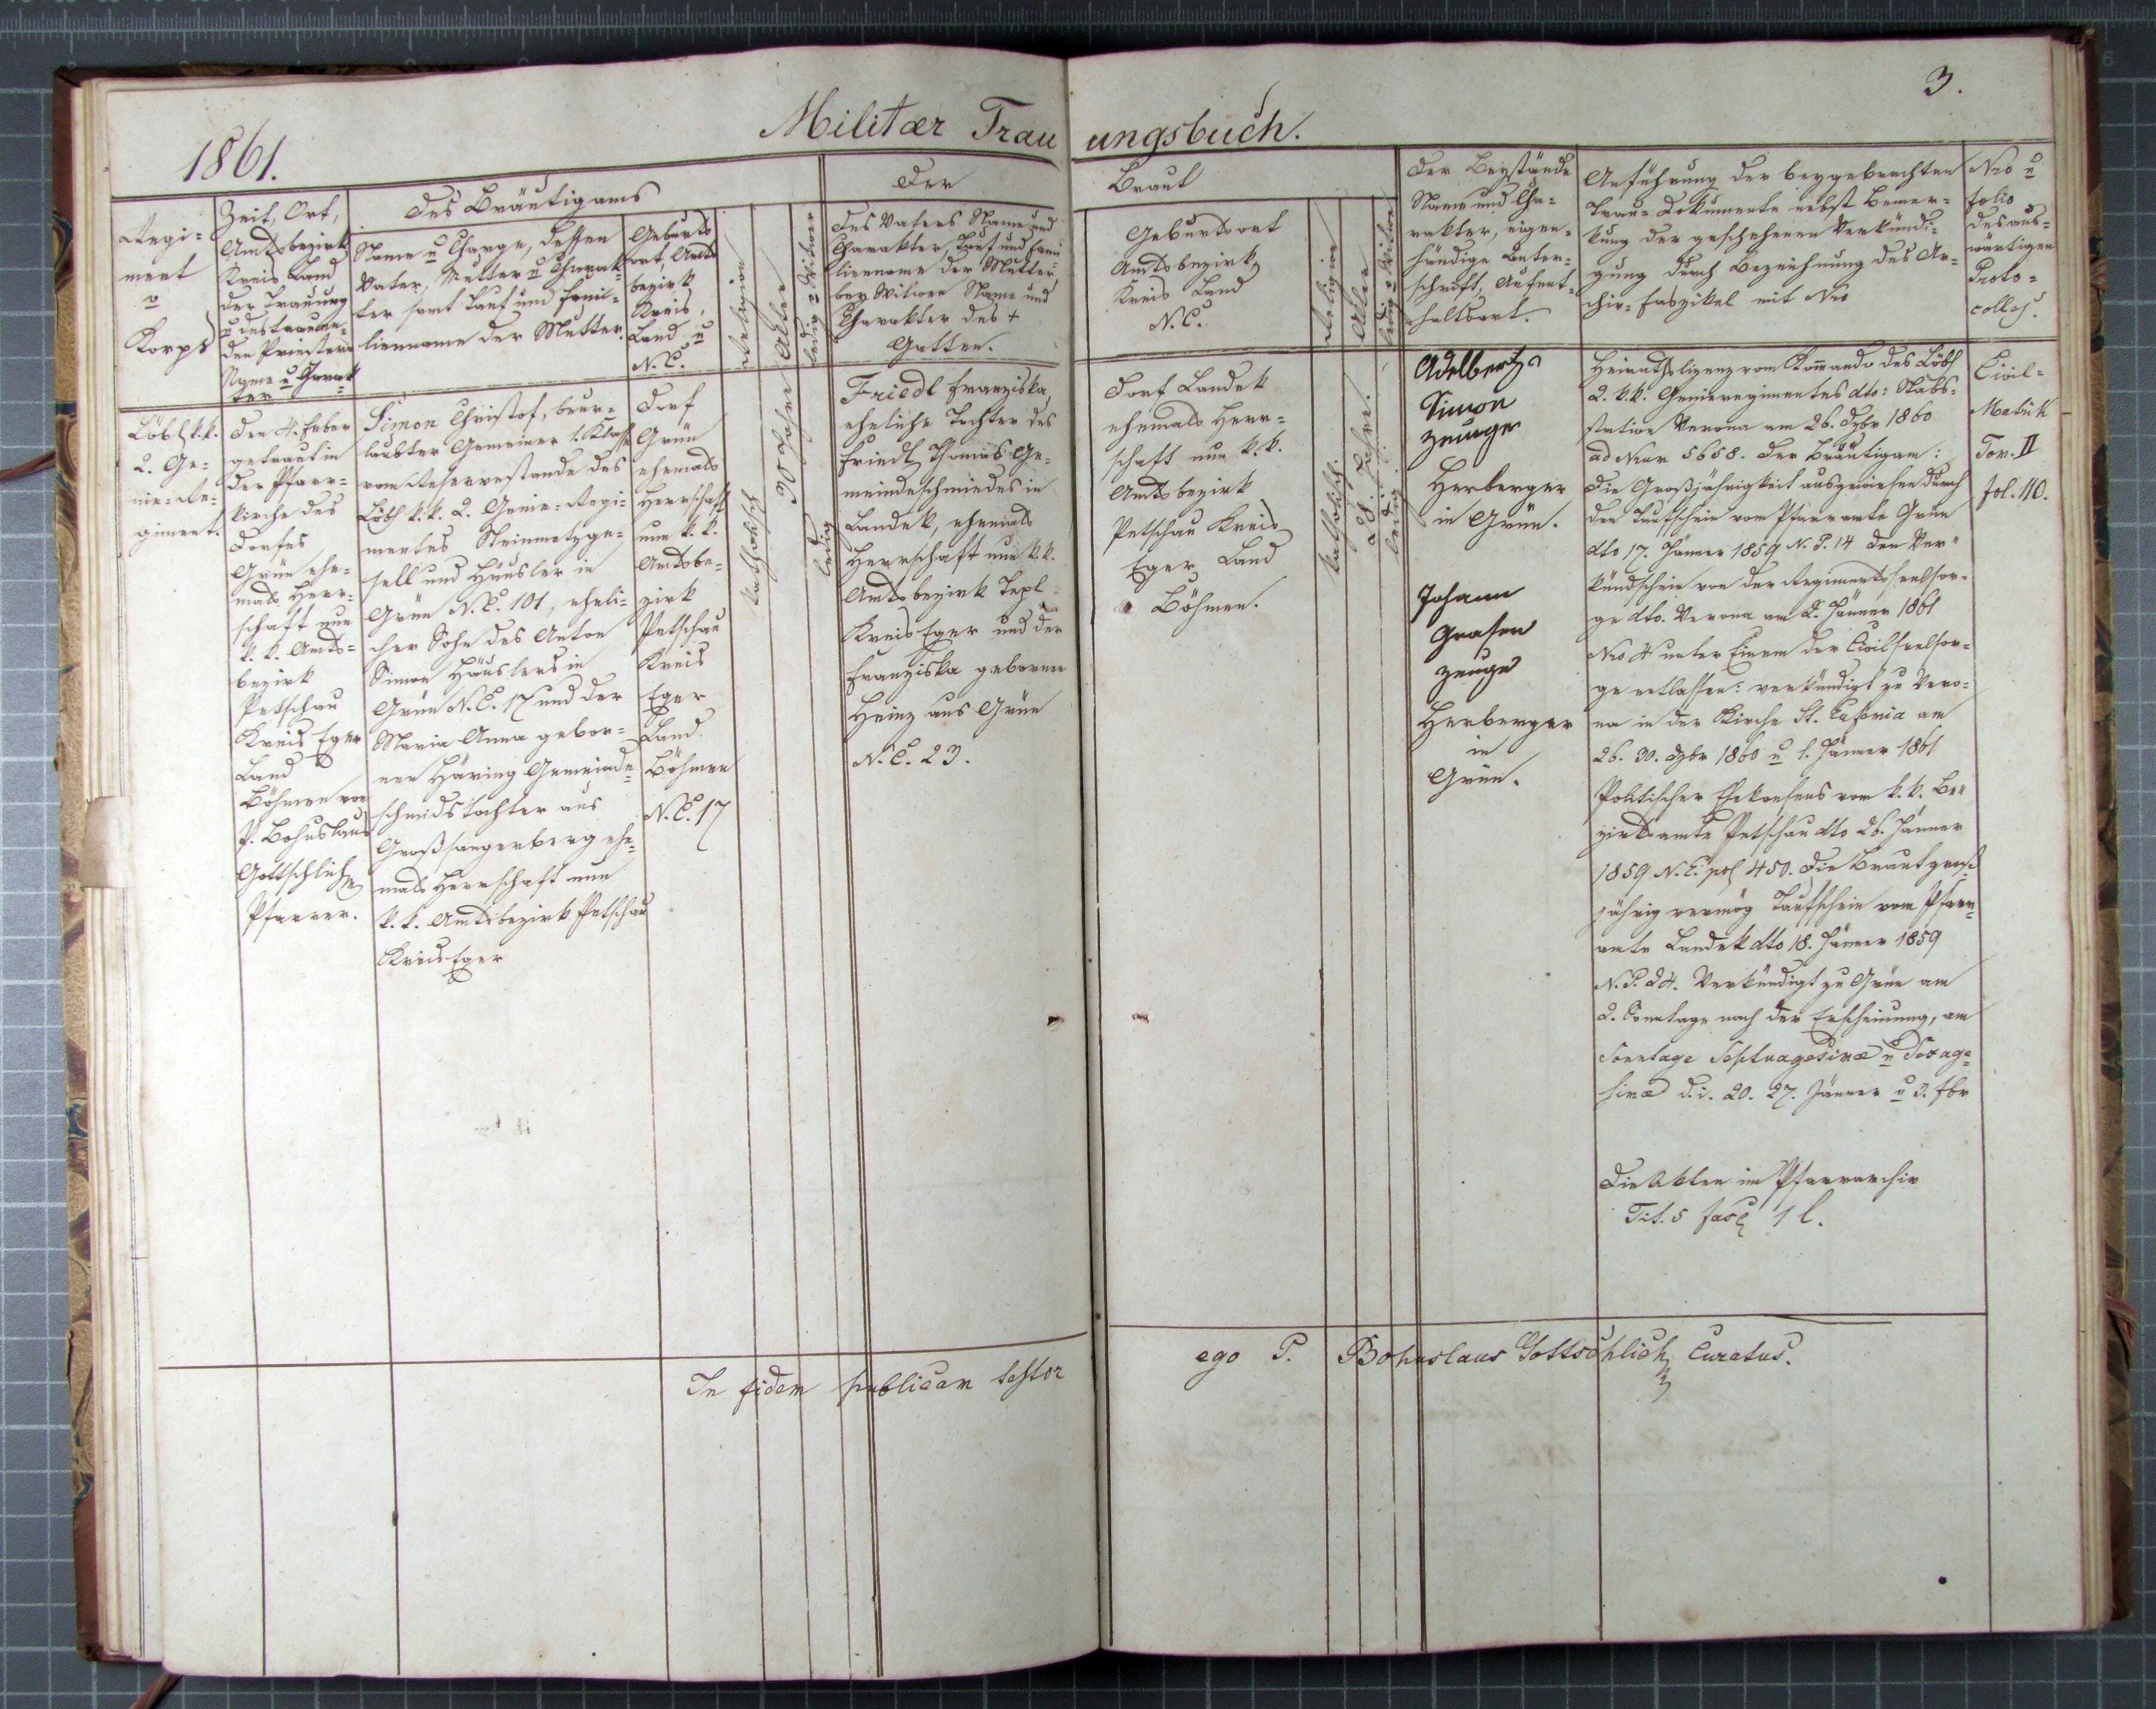 3.
Militær Trau ungsbuch.
1861.
Regi=
ment
u
Korps
Zeit, Ort,
Amtsbezirk
Kreis Land
der Trauung
u des trauen=
den Priesters
Name u Charak=
ter
Des Bräutigams
Name u Charge, dessen
Vater, Mutter u Charak=
ter samt Tauf und Fami=
lienname der Mutter.
Geburts
ort, Amts
bezirk
Kreis,
Land u
N. C.
Religion
Alter
ledig o Witwer
Der
Des Vaters Name und
Charakter, Tauf und Fami
lienname der Mutter
bey Witwen Name und
Charakter des +
Gatten.
Braut
Geburtsort
Amtsbezirk
Kreis Land
N. C.
Religion
Alter
ledig o Witwe
Der Beystände
Name und Cha=
rakter, eigen=
händige Unter=
schrift, Aufent=
haltsort.
Anführung der beygebrachten
Trau=Dokumente nebst Bemer=
kung der geschehenen Verkündi=
gung durch Bezeichnung des Ar=
chiv=Faszikel mit Nro
Nro u
folio
des aus=
wärtigen
Proto=
colles.
Löbl k.k.
2. Ge=
nie=Re=
giment.
Den 4. Feber
getraut in
der Pfarr=
kirche des
Dorfes
Grün ehe=
mals Herr=
schaft nun
k. k. Amts=
bezirk
Petschau
Kreis Eger
Land
Böhmen von
P. Bohuslaus
Gottschlich
Pfarrer.
Simon Christof, beur=
laubter Gemeiner 1. Klasse
vom Reservestande des
Löbl k.k. 2. Genie=Regi=
mentes Steinmetzge=
sell und Häusler in
Grün N. C. 101, eheli=
cher Sohn des Anton
Simon Häuslers in
Grün N. C. 17 und der
Maria Anna gebor=
nen Häring Gemeinde=
schmidstochter aus
Großsangerberg ehe=
mals Herrschaft nun
k. k. Amtsbezirk Petschau
Kreis Eger
Dorf
Grün
ehemals
Herrschaft
nun k. k.
Amtsbe=
zirk
Petschau
Kreis
Eger
Land
Böhmen
N. C. 17
katholisch
30 Jahre
ledig
Friedl Franziska,
eheliche Tochter des
Friedl Thomas Ge=
meindeschmiedes in
Landek, ehemals
Herrschaft nun k.k.
Amtsbezirk Tepl
Kreis Eger und der
Franziska gebornen
Heinz aus Grün
N. C. 23.
Dorf Landek
ehemals Herr=
schaft nun k. k.
Amtsbezirk
Petschau Kreis
Eger Land
Böhmen.
katholisch.
28. Jahre.
ledig
Adelbert
Simon
zeuge
Herberger
in Grün.
Johann
Grasen
zeuge
Herberger
in
Grün.
Heirathslizenz vom Komando des Löbl
2. k.k. Genieregimentes dto: Stabs=
station Verona am 26. Dzbr 1860
ad Num 5658. Der Bräutigam:
die Großjährigkeit ausgewiesen durch
den Taufschein vom Pfarramte Grün
dto 17. Jänner 1859 N. P. 14 den Ver=
kündschein von der Regimentsseelsor=
ge dto. Verona am 2. Jänner 1861
Nro 4 unter Einem der Civilseelsor=
ge entlassen: verkündigt zu Vero=
na in der Kirche St. Eufemia am
26. 30. Dzbr 1860 u 1. Jänner 1861
Politischer Ehekonsens vom k. k. Be=
zirksamte Petschau dto 26. Jänner
1859 N. E. pol 450. Die Braut groß=
jährig vermög Taufschein vom Pfarr=
amte Landek dto 18. Jänner 1859
N. P. 24. Verkündigt zu Grün am
2. Sonntage nach der Erscheinung, am
Sonntage Septuagesimæ u Sexage=
simæ d. i. 20. 27. Jänner u 3. fbr
Die Akten im Pfarrarchiv
Tit. 5 fasc 1 l.
Civil=
Matrik
Tom. II
fol. 110.
In fidem publicam testor
ego P. Bohuslaus Gottschlich Curatus.